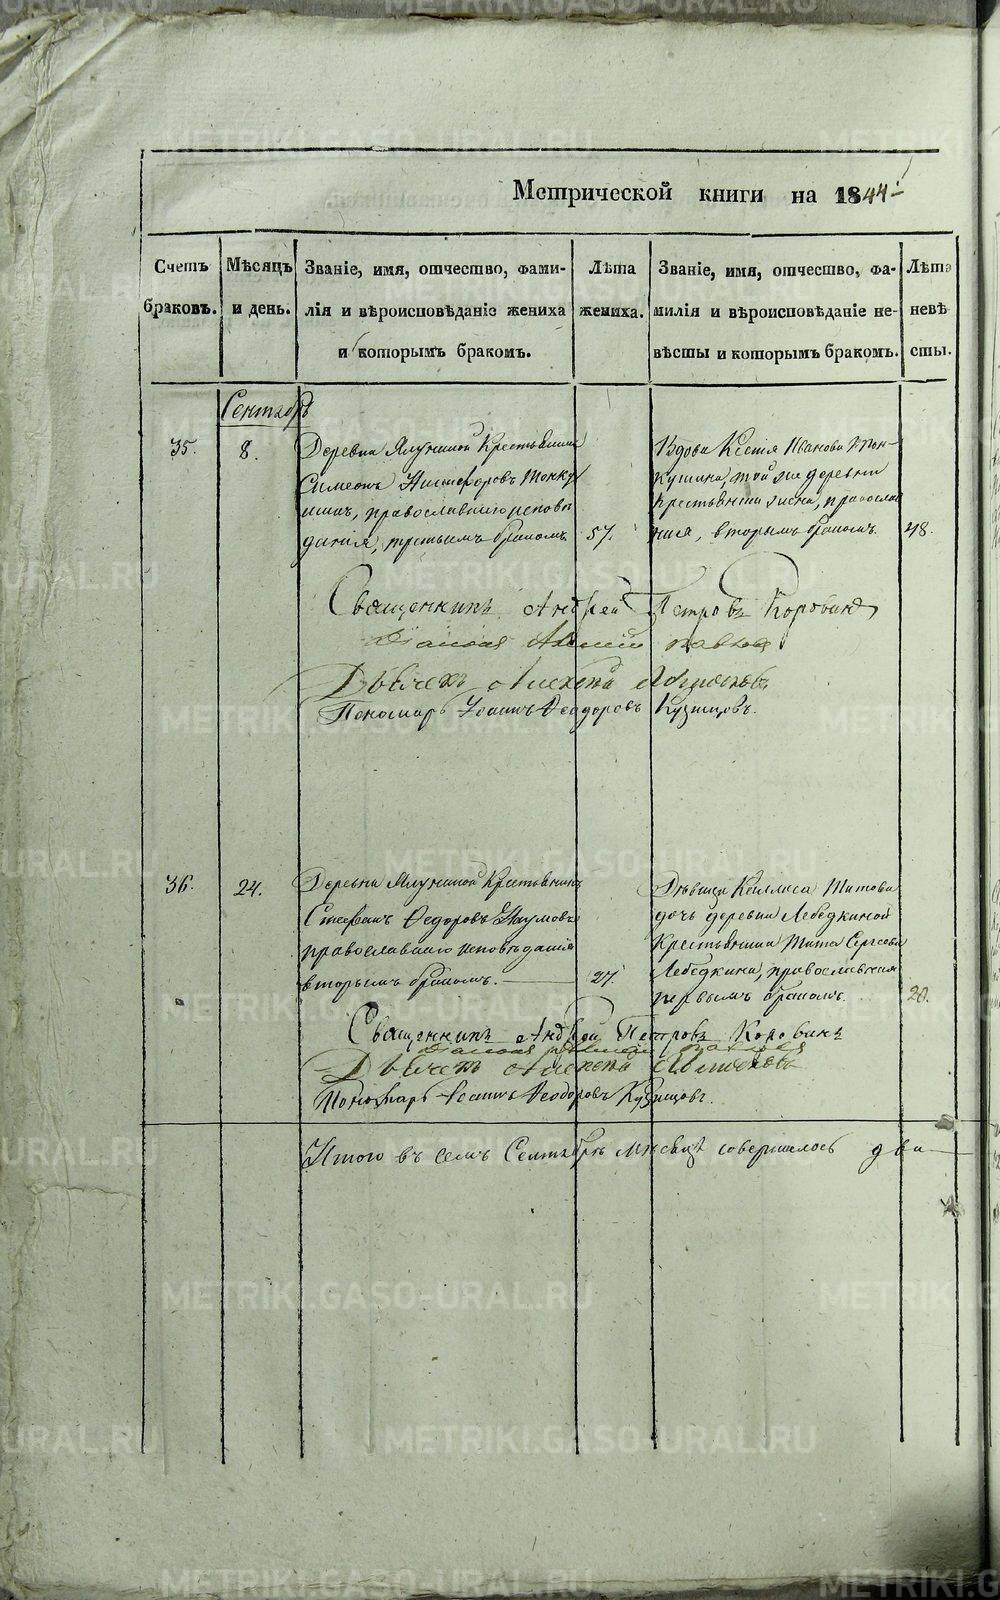 Метрической книги на 1844й
Счетъ браковъ.
Мѣсяцъ и день.
Званіе, имя, отчество, фамилія и вѣроисповѣданіе жениха и которымъ бракомъ.
Лѣта жениха.
Званіе, имя, отчество, фамилія и вѣроисповѣданіе невѣсты и которымъ бракомъ.
Лѣта невѣсты.
Сентябрь
35.
8.
Деревни Ялуниной Крестьянинъ
Симеонъ Никифоровъ Тонку
шинъ, православнаго исповѣ
данія, третьимъ бракомъ.
57.
Вдова Ксенія Иванова Тон-
кушина, той же деревни
Крестьянская жена, православ
ная, вторымъ бракомъ.
48.
Священникъ Андрей Петровъ Коровинъ
Діаконъ
Дьячекъ Алексѣй
Пономарь Іоаннъ Ѳеодоровъ Кузнецовъ.
36.
24.
Деревни Ялуниной Крестьянинъ
Стефанъ Ѳедоровъ Наумовъ
православнаго исповѣданія
вторымъ бракомъ.
27.
Дѣвица Титова
дочь деревни Лебедкиной
Крестьянина Тита Сергеева
Лебедкина, православная
первымъ бракомъ.
20.
Священникъ Андрей Петровъ Коровинъ
Діаконъ
Дьячекъ Алексѣй
Пономарь Іоаннъ Ѳеодоровъ Кузнецовъ.
Итого въ семъ Сентябрѣ мѣсяцѣ совершилось два
METRIKI.GASO-URAL.RU